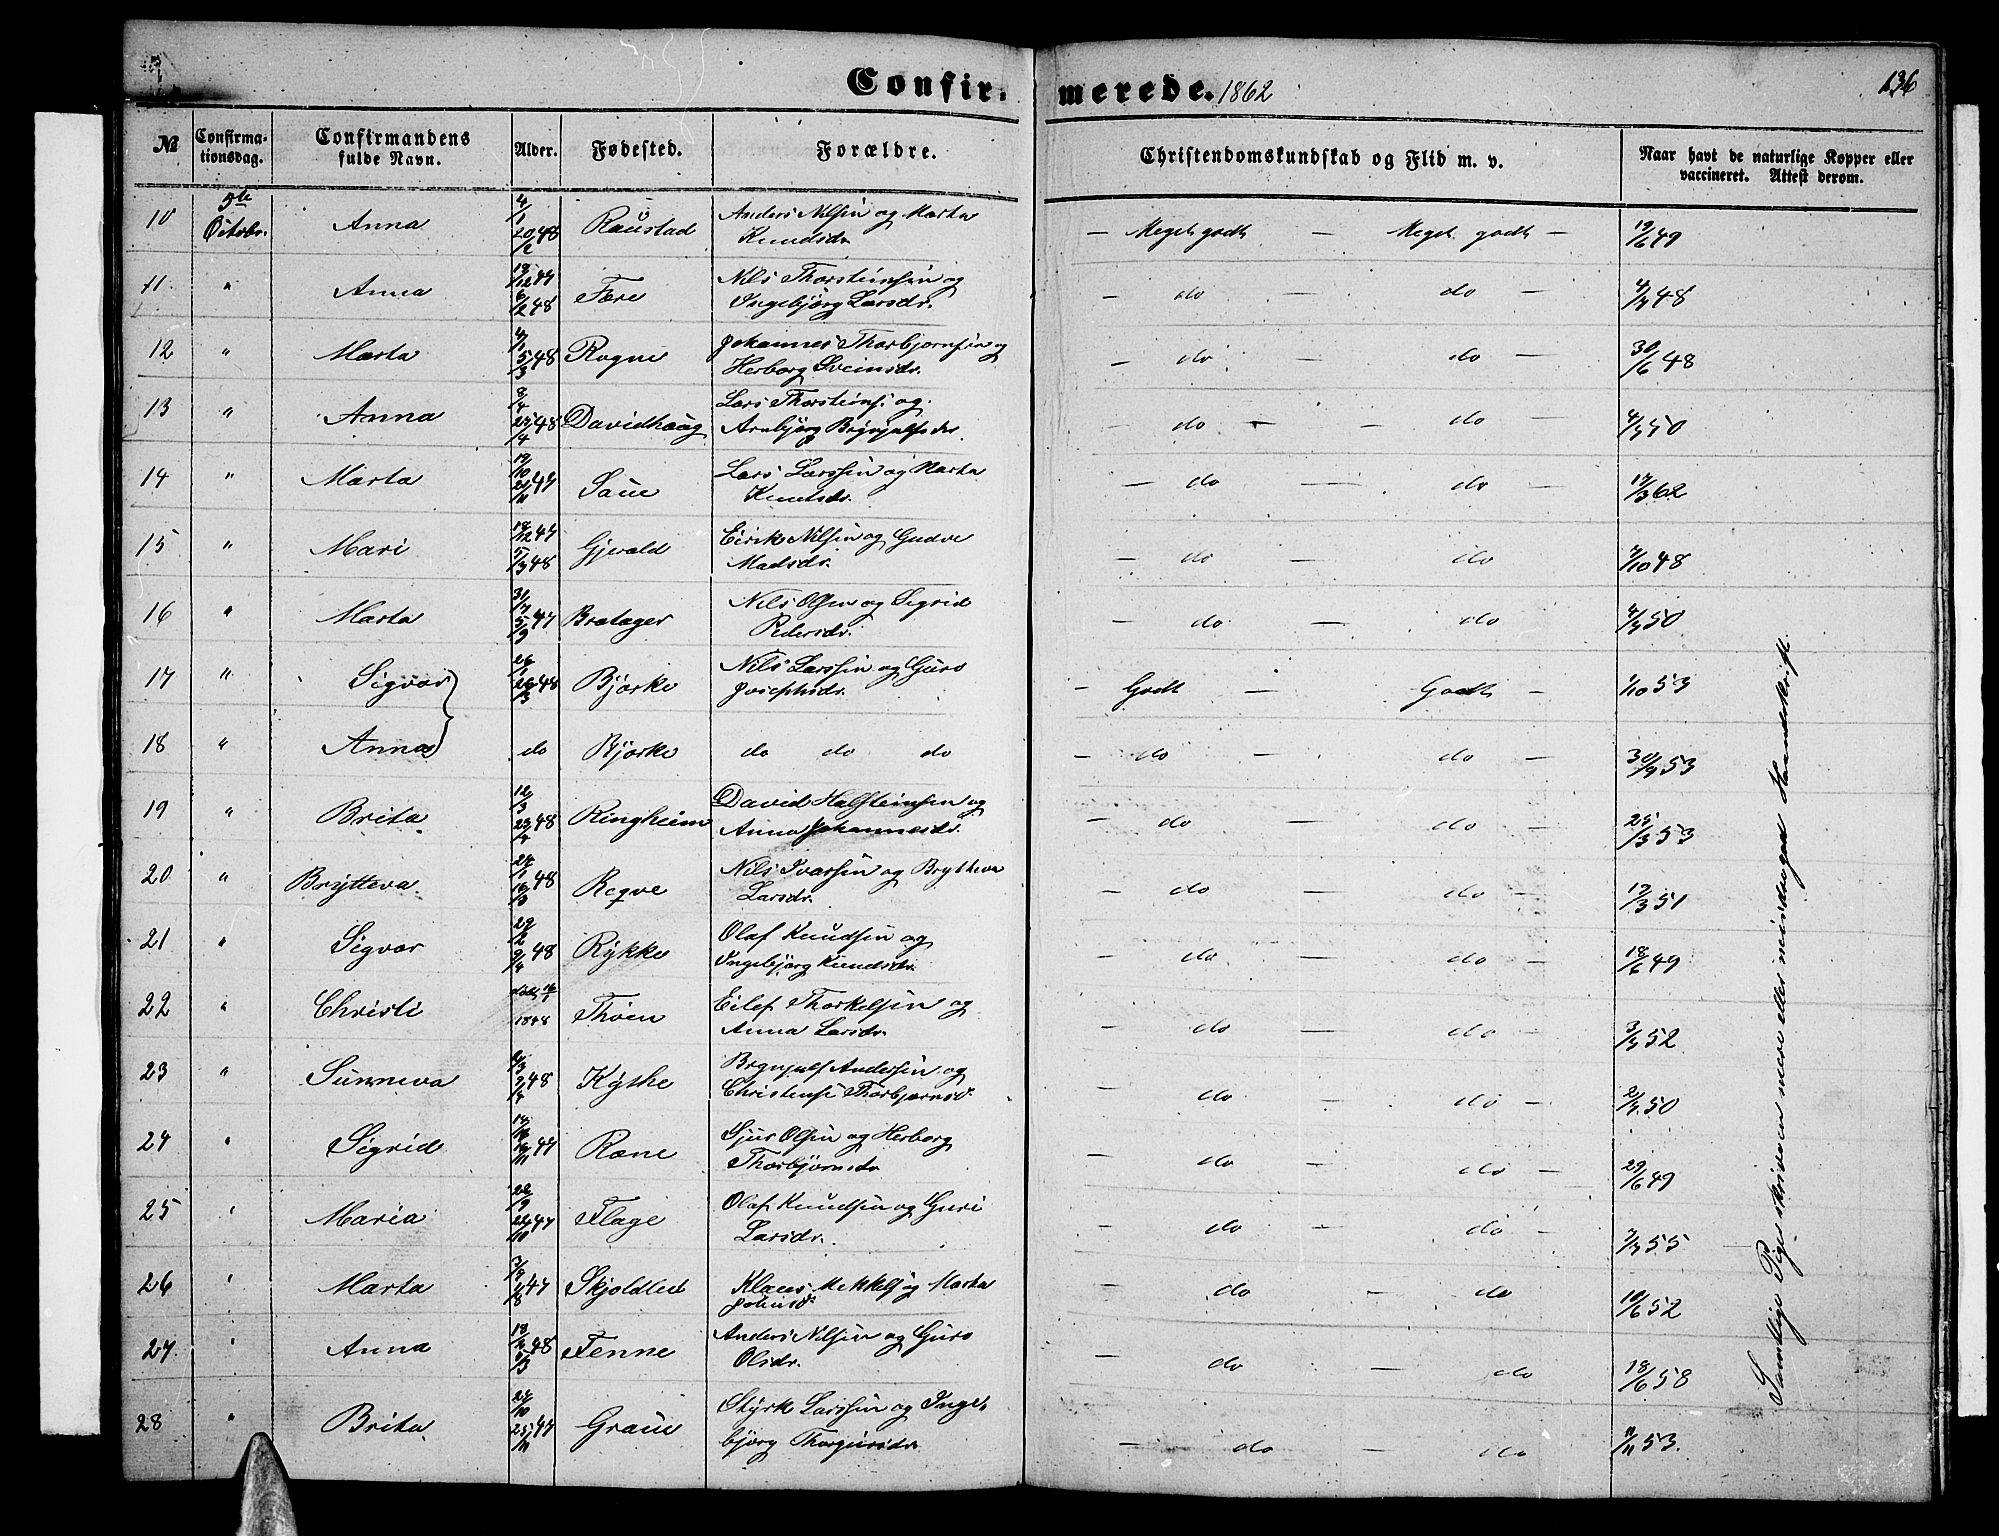 Confir- merede. 1862
136
№ Confirma- tionsdag. Confirmandens fulde Navn. Alder. Fødested. Forældre. Christendomskundskab og Flid m. v. Naar havt de naturlige Kopper eller vaccineret. Attest derom.
10 5te Octobr. Anna 4/1 20/2 48 Raustad Anders Nilssen og Marta
Knudsdr. — Meget godt — Meget godt — 19/6 49
11 " Anna 48 Føre Nils Thorsteinsen og
Ingebjørg Larsdr. — do — do — 4/7 48
12 " Marta 4/1 5/3 48 Rogne Johannes Thorbjørnsen og
Herborg Sveinsdr. — do — do — 30/6 48
13 " Anna 8/4 48 Davidhaug Lars Thorsteins. og
Arnbjørg Brynjulfsdr. — do — do — 4/7 50
14 " Marta 19/10 21/11 47 Saue Lars Larssen og Marta
Knutsdr. — do — do — 17/3 62
15 " Mari 18/12 47 5/3 48 Gjerald Eirik Nilssen og Gudve
Madsdr. — do — do — 7/10 48
16 " Marta 31/7 5/9 47 Bratager Nils Olsen og Sigrid
Pedersdr. — do — do — 4/7 50
17 " Sigvor 26/1 26/3 48 Bjørke Nils Larssen og Guro
Josephsdr. — Godt — Godt — 1/10 53
18 " Anna do Bjørke do do do — do — do — 30/9 53
19 " Brita 12/3 48 Ringheim David Halsteinsen og
Anna Johannesdr. — do — do — 25/3 53
20 " Brytteva 24/1 16/3 48 Reqve Nils Ivarssen og Brytheva
Larsdr. — do — do — 19/3 51
21 " Sigvor 29/2 9/4 48 Rykke Olaf Knudsen og
Ingebjørg Knudsdr. — do — do — 18/6 49
22 " Christi 1848 Thoen Eilef Thorkelsen og
Anna Larsdr. — do — do — 3/7 52
23 " Sunneva 2/3 9/4 48 Kythe Brynjulf Andersen og
Christense Thorbjørnsd. — do — do — 2/7 50
24 " Sigrid 47 Rone Sjur Olsen og Herborg
Thorbjørnsdr — do — do — 29/6 49
25 " Maria 47 Flage Olaf Knudsen og Guri
Larsdr. — do — do — 7/7 55
26 " Marta 47 Skjoldled Klaus Mikkels. og Marta
Johnsd. — do — do 10/6 52
27 " Anna 48 Fenne Anders Nilssen og Guro
Olsdr. — do — do 18/6 58
28 " Brita 47 Graue Styrk Larssen og Inge-
bjørg Thorgersdr. — do — do 11/11 53.
Samtlige Piger skriver en mere eller mindre god Haandskrift.